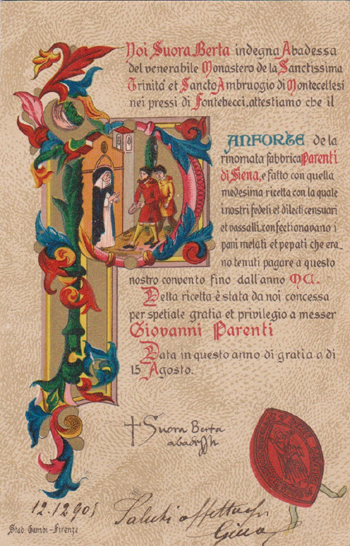 Noi Suora Berta indegna Abadessa
del venerabile Monastero de la Sanctissima
Trinita' et Sancto Ambruogio di Montecellesi
nei pressi di Fontebecci, attestiamo che il
PANFORTE de la
rinomata fabbrica Parenti
di Siena, e fatto con quella
medesima ricetta con la quale
i nostri fedeli et dilecti censuari
et vassalli, confectionavano i
pani melati et pepati che era_
no tenuti pagare a questo
nostro convento fino dall'anno MC.
Detta ricetta è stata da noi concessa
per spetiale gratia et privilegio a messer
Giovanni Parenti
Data in questo anno di gratia a di
15 Agosto.
Suora Berta
12.12.905
Saluti affettuosi
Stab. Gambi - Firenze